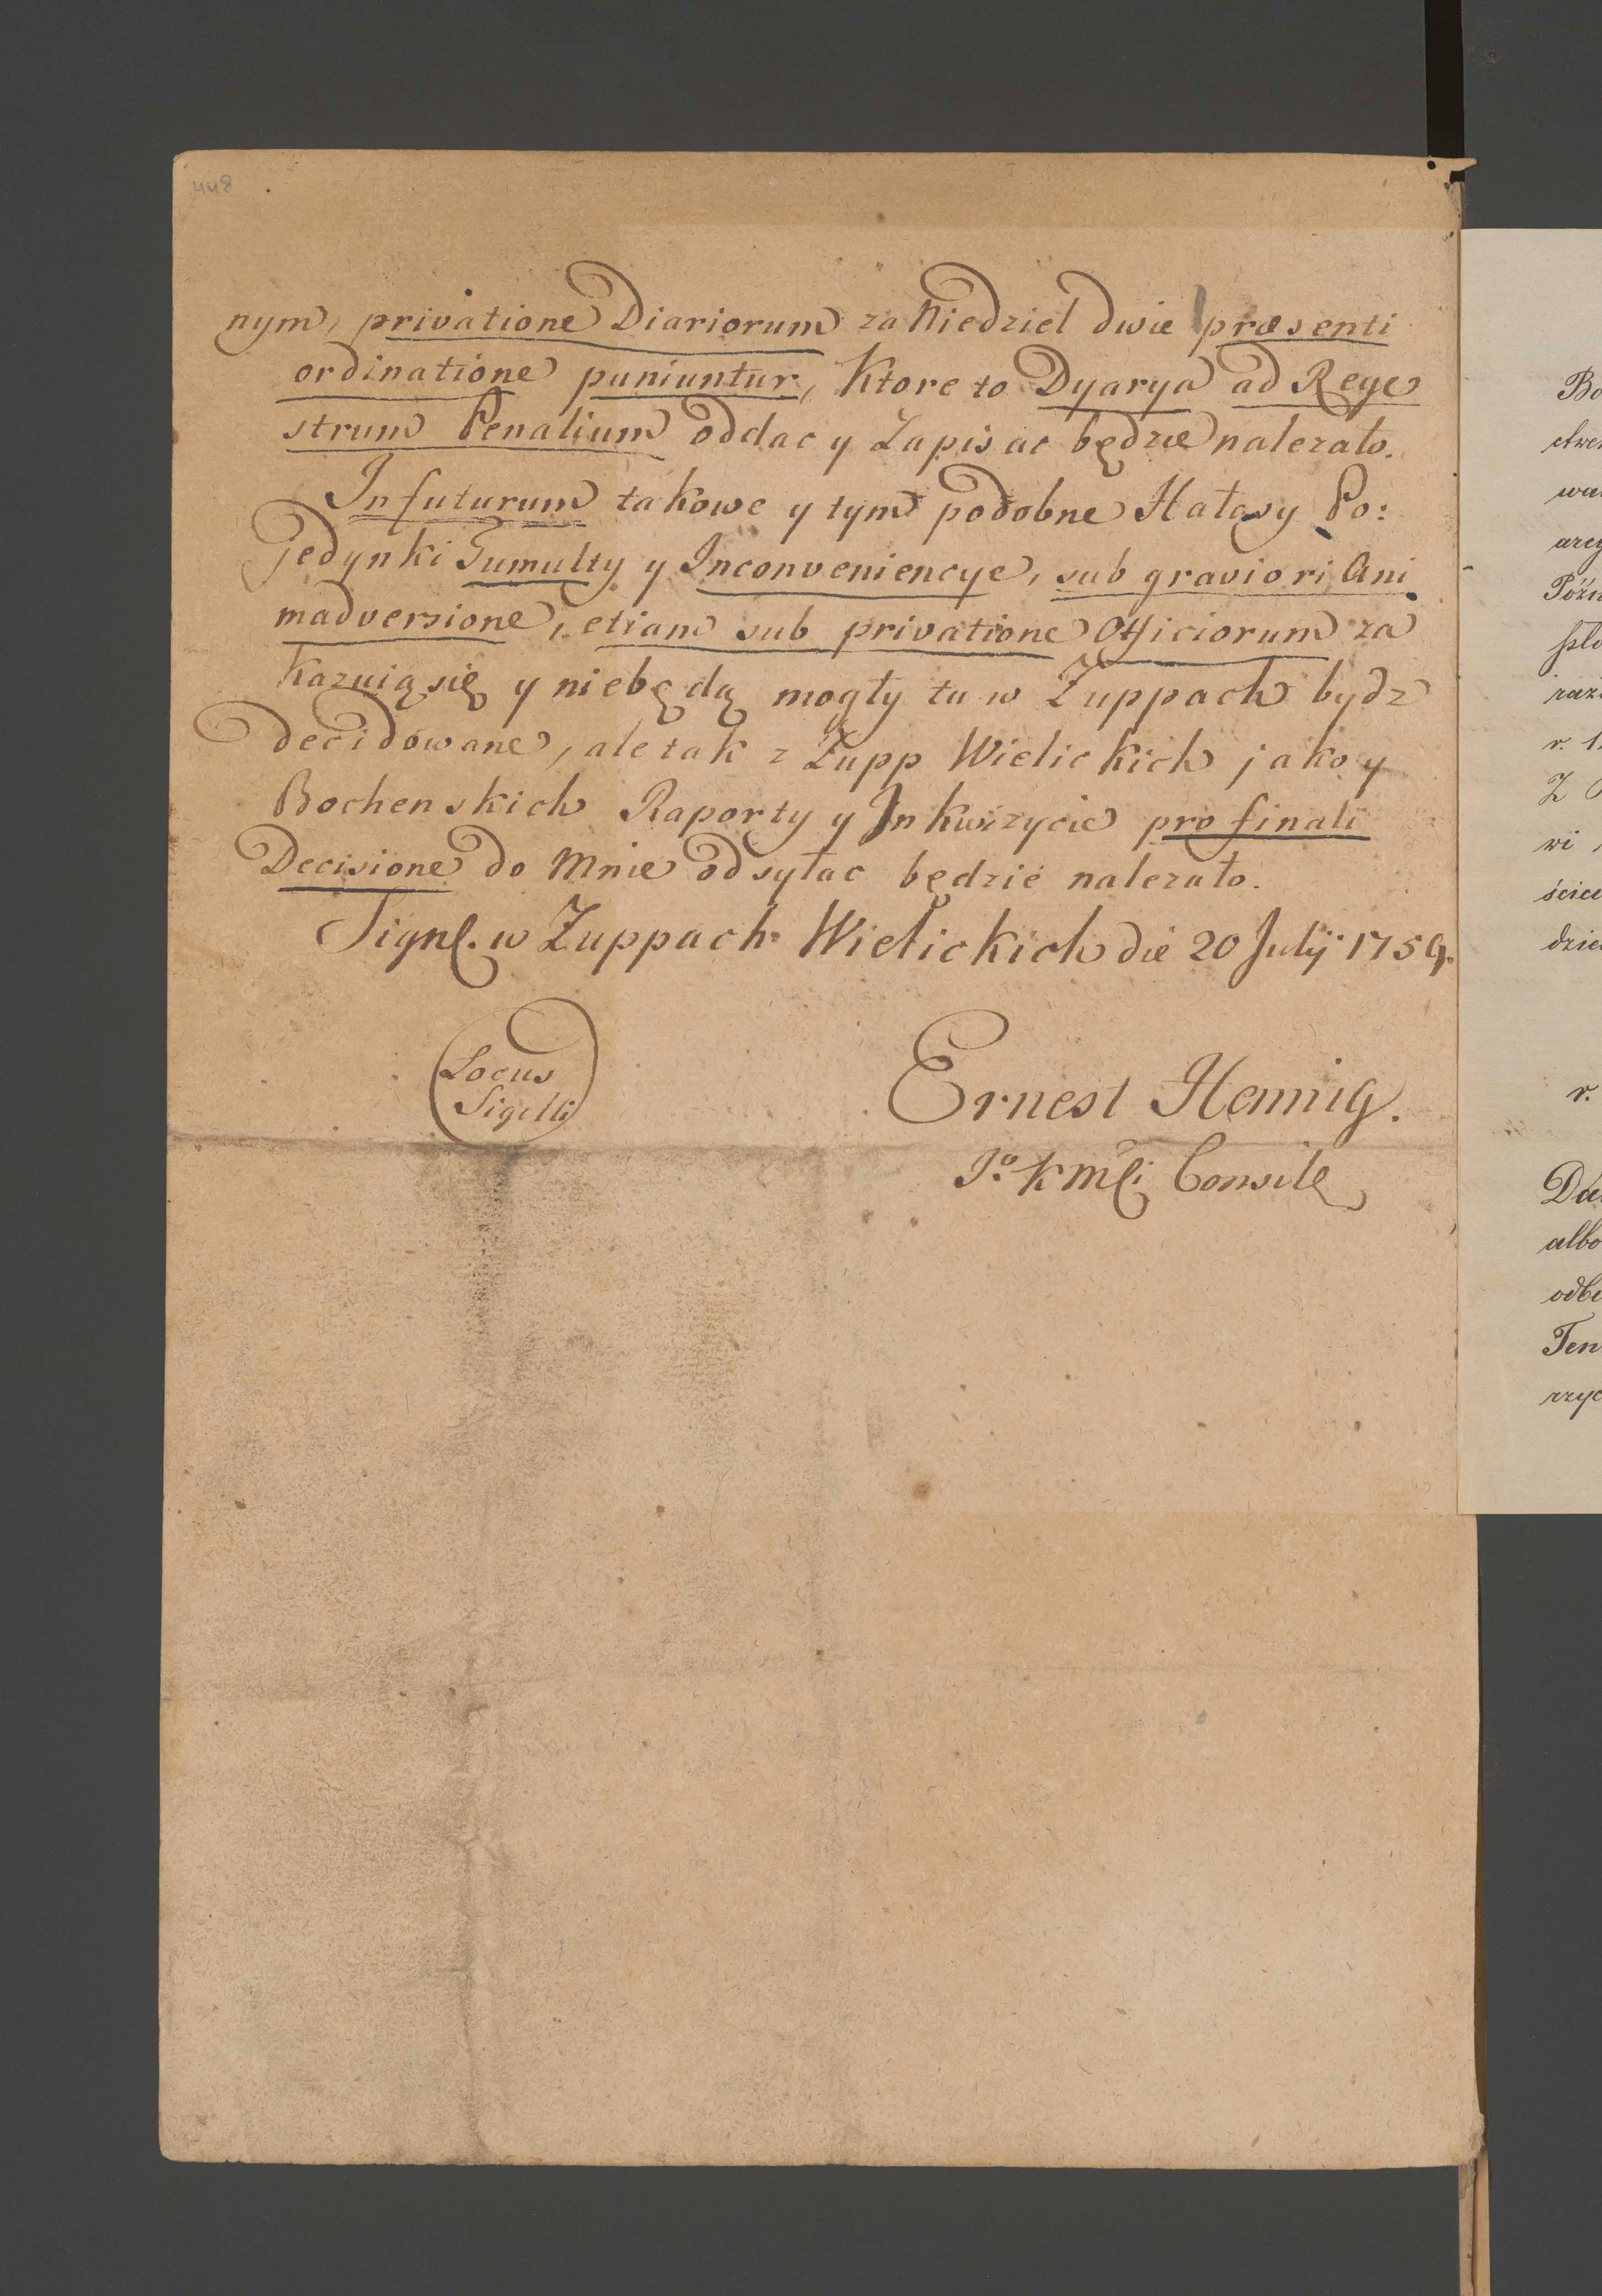 448
nym, privatione Diariorum za Niedziel dwie præsenti
ordinatione puniuntur, Ktore to Dyarya ad Rege
strum Penalium oddac y Zapisac będzie nalezało.
In futurum takowe y tym podobne Hałasy Po:
jedynki Tumulty y Inconveniencye, sub graviori Ani
madversione, etiam sub privatione Officiorum za
kazuią się y niebędą mogły tu w Zuppach bydz
decidowane, ale tak z Zupp Wielickich jako y
Bochenskich Raporty y Inkwizycie pro finali
Decisione do Mnie odsyłac będzie nalezało.
Signl. w Zuppach Wielickich die 20 Julij 1759.
Locus
Sigilli
Ernest Hennig.
Jo K Mci Consil
Bo
wi
r.
albo
Ten